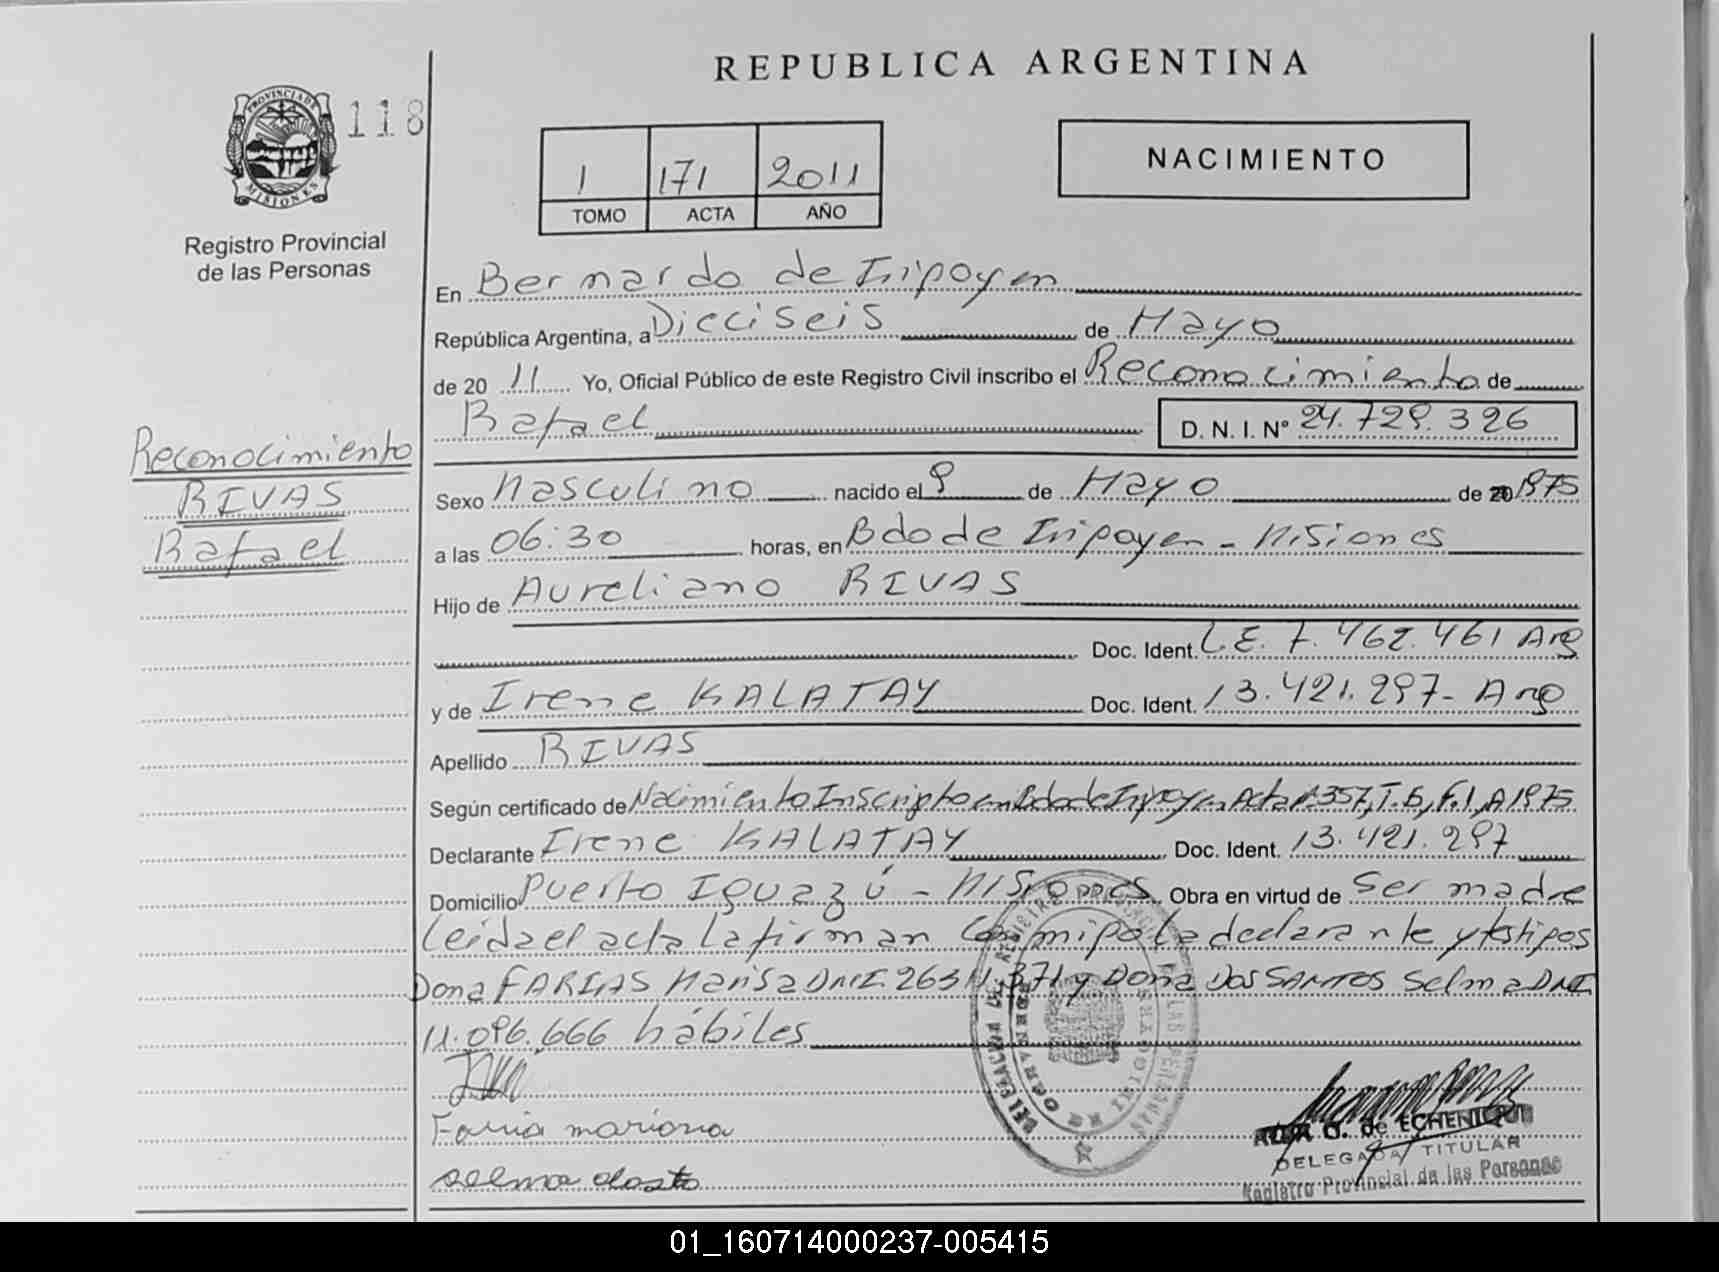 REPUBLICA ARGENTINA
PROVINCIA DE MISIONES
118
Registro Provincial
de las Personas
1 171 2011
TOMO ACTA AÑO
NACIMIENTO
En Bernardo de Iripoyen
República Argentina, a Dieciseis de Mayo
de 20 11 Yo, Oficial Público de este Registro Civil inscribo el Reconocimiento de
Rafael D. N. I. N° 24.729.326
Reconocimiento
RIVAS
Rafael
Sexo Masculino nacido el 9 de Mayo de 1975
a las 06:30 horas, en Bdo de Iripoyen - Misiones
Hijo de Aureliano RIVAS
Doc. Ident. L.E. 7.462.461 Arg
y de Irene KALATAY Doc. Ident. 13.421.297- Arg
Apellido RIVAS
Según certificado de Nacimiento Inscripto en Bdo de Iripoyen Acta N°357, T.5, F.1, A1975
Declarante Irene KALATAY Doc. Ident. 13.421.297
Domicilio Puerto Iguazú - Misiones Obra en virtud de Ser madre
Leida el acta la firman Conmipo la declarante y testipos
Dona FARIAS Marisa DNI. 26311.371 y Dona DOS SANTOS Selma DNI
11.096.666 hábiles
Farria mariona
selma dosto
G. de ECHENIQUE
DELEGADA TITULAR
Registro Provincial de las Personas
01_160714000237-005415